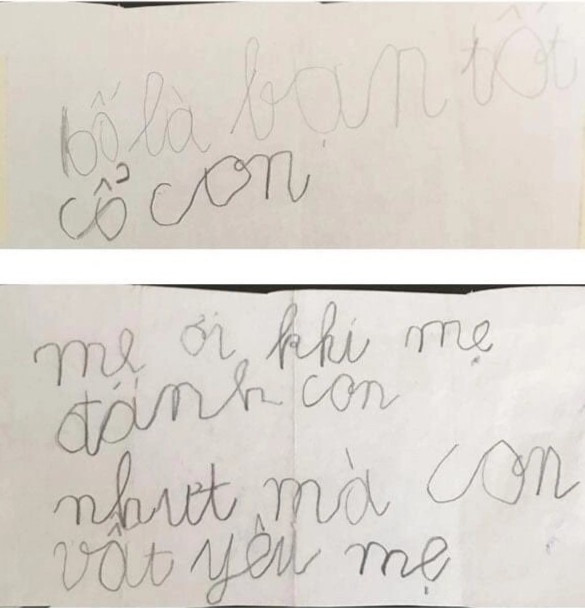 bố là bạn tốt
cổ con
mẹ ơi khi mẹ
đánh con
nhưt mà con
vất yêu mẹ